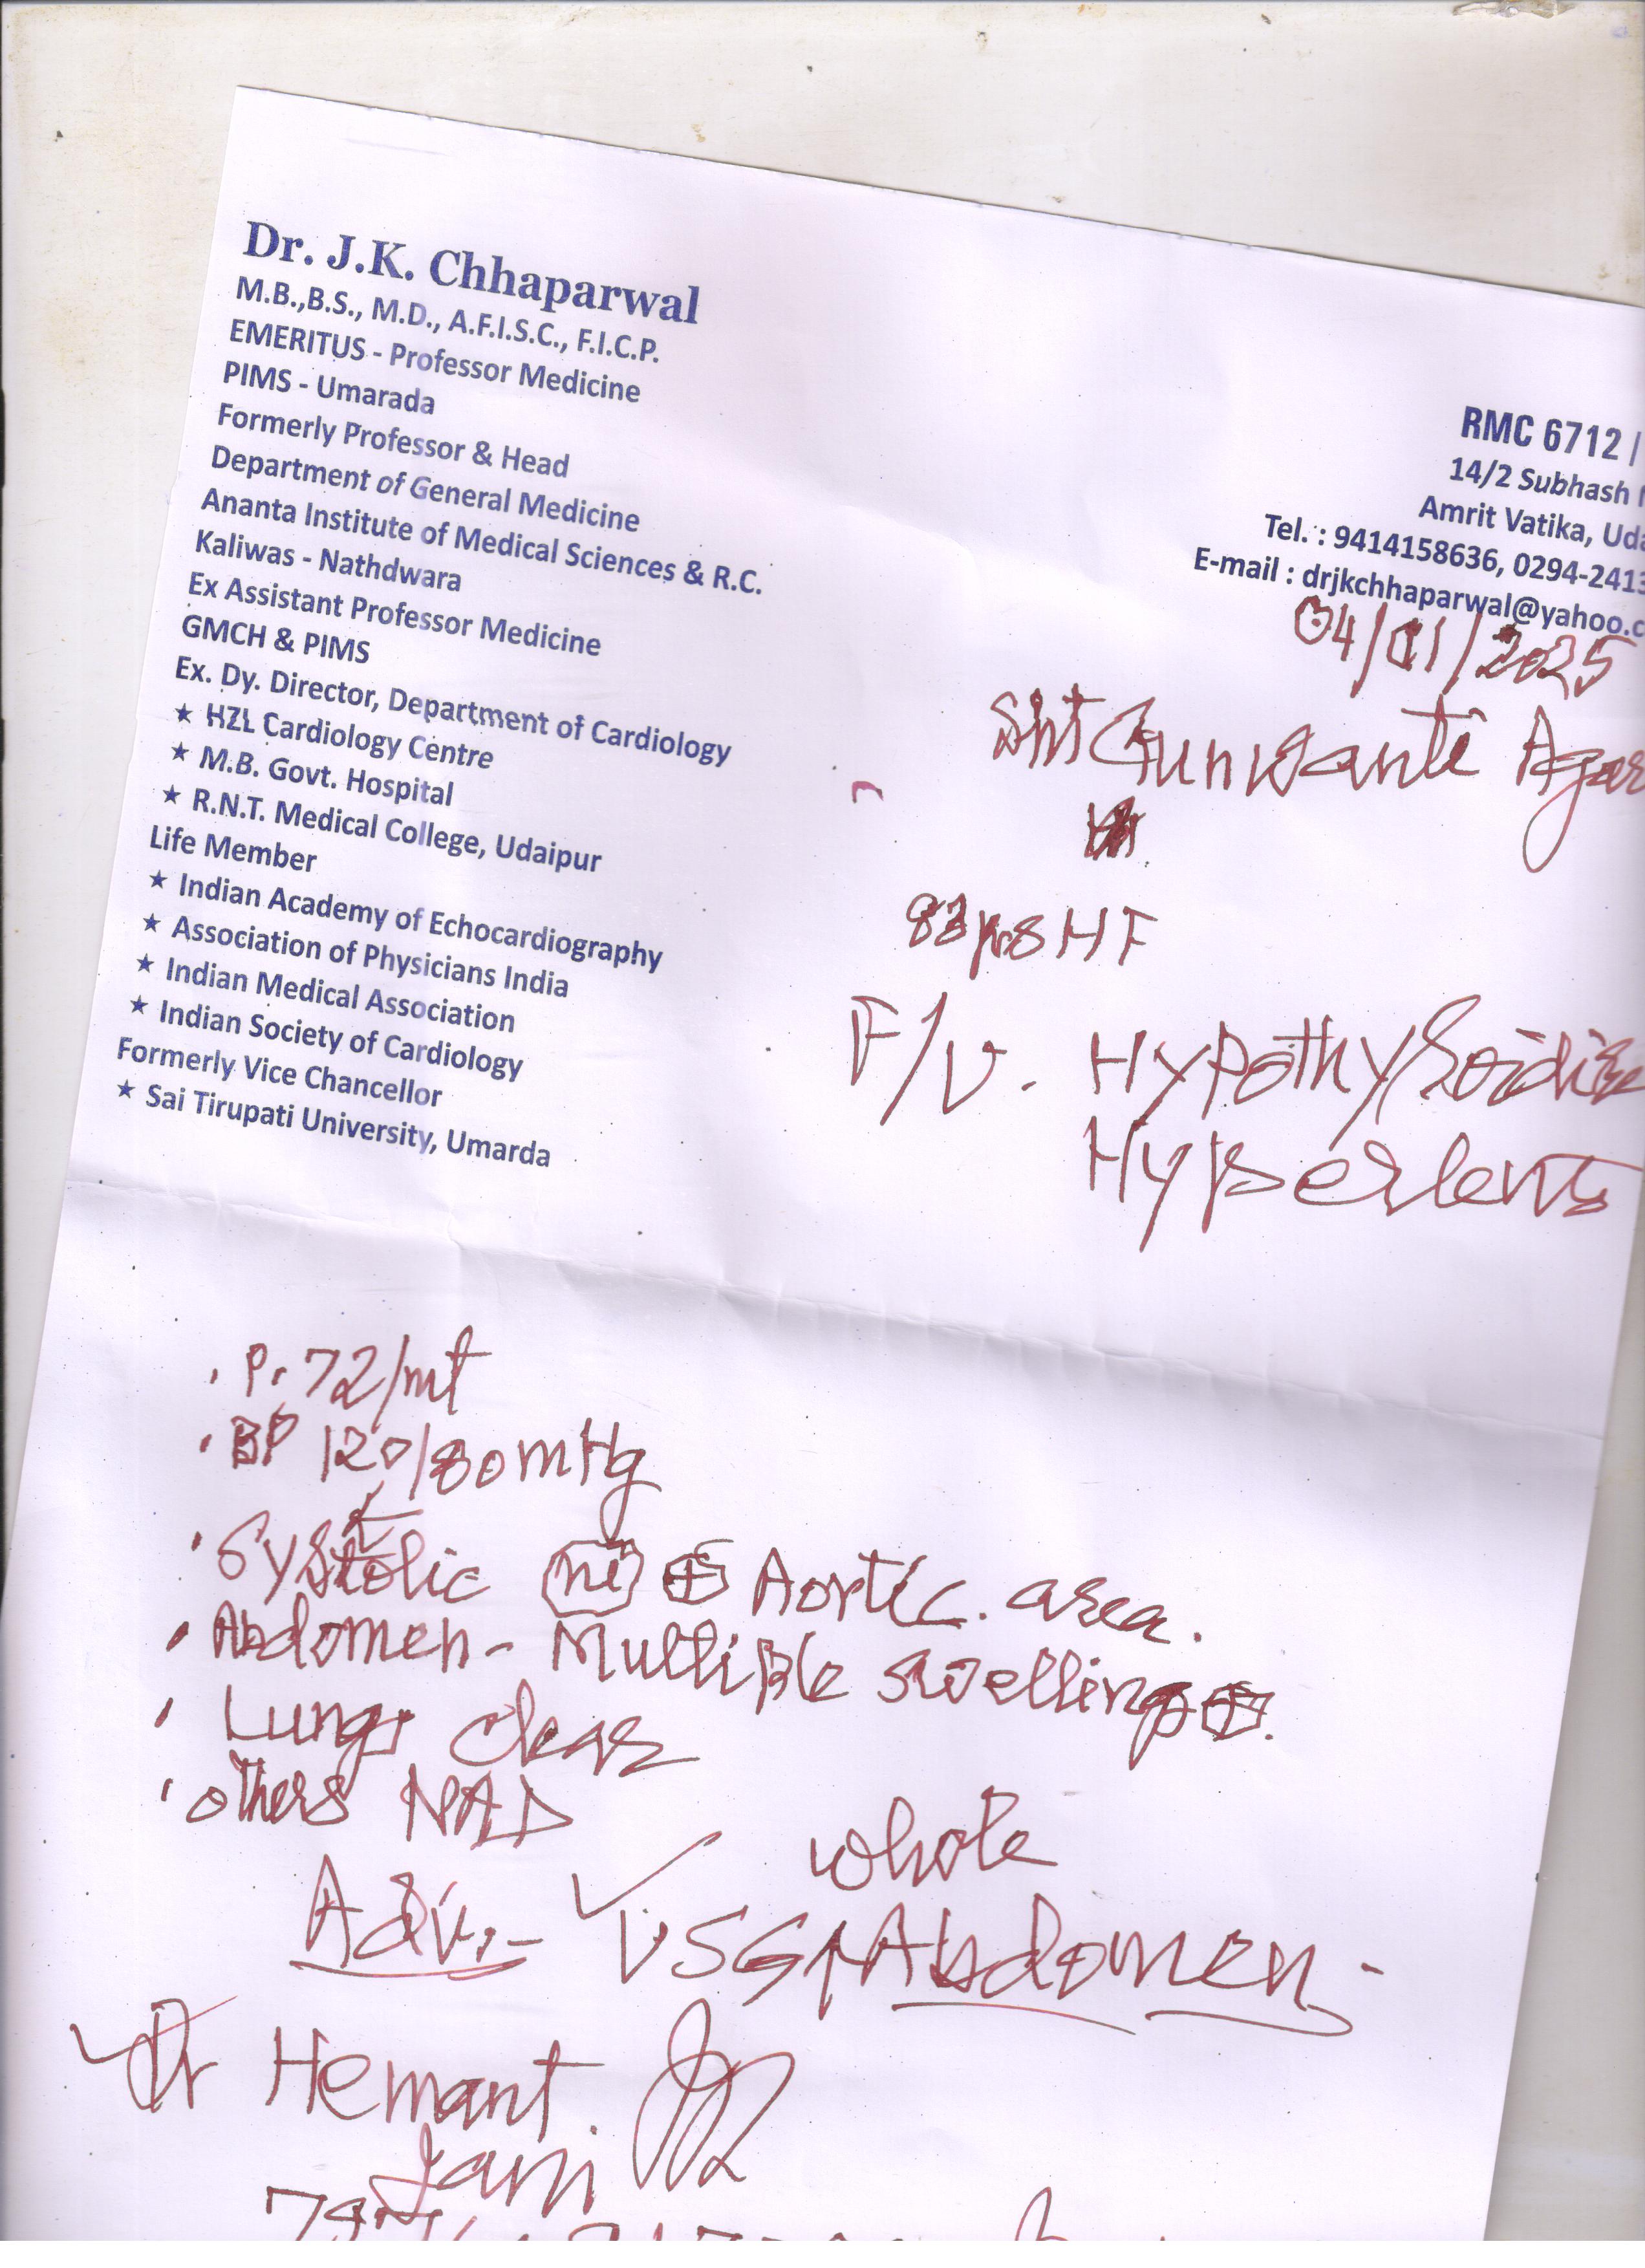 Dr. J.K. Chhaparwal
M.B.,B.S., M.D., A.F.I.S.C., F.I.C.P.
EMERITUS - Professor Medicine
PIMS - Umarada
Formerly Professor & Head
Department of General Medicine
Ananta Institute of Medical Sciences & R.C.
Kaliwas - Nathdwara
Ex Assistant Professor Medicine
GMCH & PIMS
Ex. Dy. Director, Department of Cardiology
★ HZL Cardiology Centre
★ M.B. Govt. Hospital
★ R.N.T. Medical College, Udaipur
Life Member
★ Indian Academy of Echocardiography
★ Association of Physicians India
★ Indian Medical Association
★ Indian Society of Cardiology
Formerly Vice Chancellor
★ Sai Tirupati University, Umarda
RMC 6712 |
14/2 Subhash
Amrit Vatika, Uda
Tel. : 9414158636, 0294-2413
E-mail : drjkchhaparwal@yahoo.c
04/01/2025
Smt Gunwanti Agar
83 yrs H F
F/U. Hypothyroidis
Hypertens
. P. 72/mt
. BP 120/80 mmHg
. Systolic (m) ⊕ Aortic. area.
. Abdomen - Multiple swellings ⊕.
. Lungs clear
. others NAD
Adv:- ✓ USG whole Abdomen -
✓ Dr Hemant.
Jain